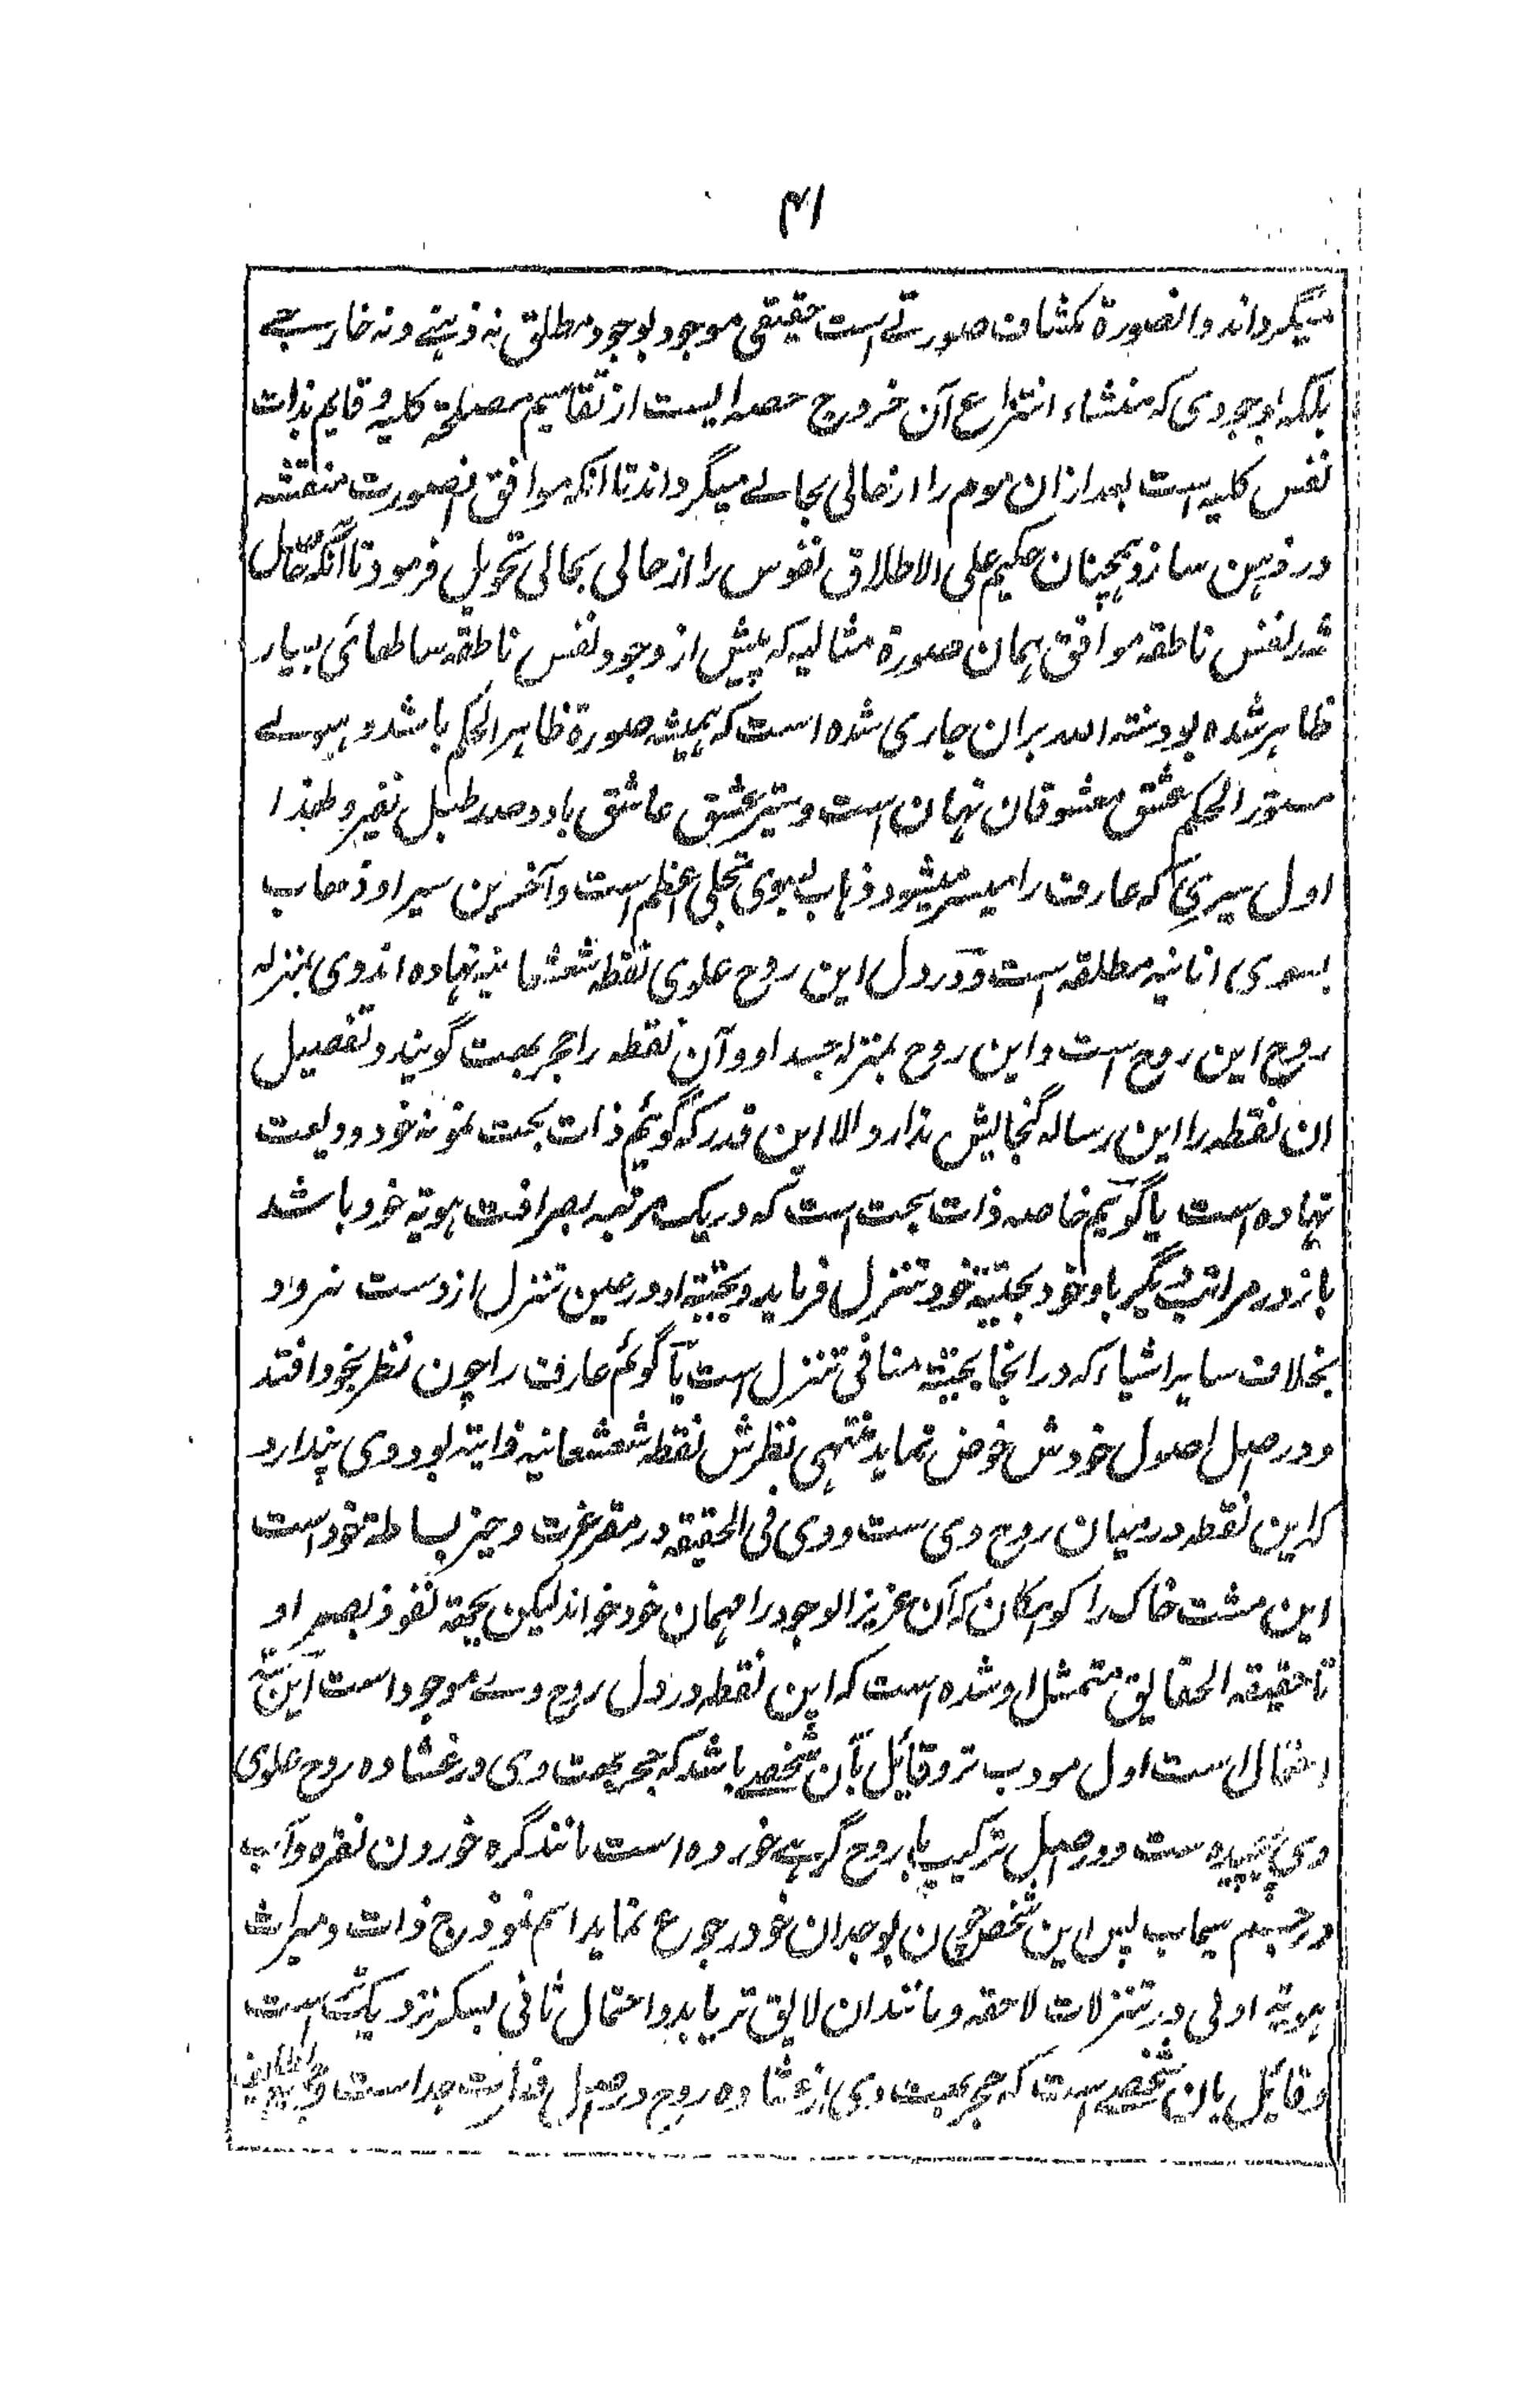 ۴۱
میگرداند و انصورة مکشاف صورتے است حقیقی موجود بوجود مطلق نہ ذہنے و نہ خارجے
بلکہ بوجودی کہ منشاء انتزاع آن خروج حصہ ایست از تقاسیم مصلحة کلیہ و قایم بذات
نفس کلیہ است بعد ازان موم را از حالی بحالے میگرداند تا آنکہ موافق انصورت منقشہ
در ذہن سازد ہمچنان حکیم علی الاطلاق نفوس را از حالی بحالی تحویل فرمود تا آنکہ حاصل
شد نفس ناطقہ موافق ہمان صورة مثالیہ کہ پیش از وجود نفس ناطقہ ساطعائی بسیار
ظاہر شدہ بود سنتہ اللہ بران جاری شدہ است کہ ہمیشہ صورة ظاہر الحکم باشد و ہیولے
مستور الحکم عشق معشوقان نہان است و ستیر عشق عاشق با دو صد طبل نفیر و لہذا
اول سیری کہ عارف را میسر میشود ذہاب بسوی تجلی اعظم است و آخرین سیر او ذہاب
بسوی انانیہ مطلقہ است و در دل این روح علوی نقطہ شعشعانیہ نہادہ اند وی بمنزلہ
روح این روح است و این روح بمنزلہ جسد او و آن نقطہ را حجر بحت گویند و تفصیل
ان نقطہ را این رسالہ گنجایش ندارد الا این قدر کہ گوئیم ذات بحت نمونہ خود ودیعت
نہادہ است یا گوئیم خاصہ ذات بحت است کہ در یک مرتبہ بصرافت ہویة خود باشد
باز در مراتب دیگر با وجود بحتیة خود تنزل فرماید و بحتیة او در عین تنزل از دست نرود
بخلاف سایر اشیاء کہ در انجا بحتیة منافی تنزل است یا گوئم عارف را چون نظر بخود افتد
و در اصل اصول خودش خوض نماید منتہی نظرش نقطہ شعشعانیہ ذاتیہ بود وی پندارد
کہ این نقطہ در میان روح وی ست و وی فی الحقیقہ در مقر عزت و حیز بساطة خود است
این مشت خاک را کو امکان کہ آن عزیز الوجود را مہمان خود خواند لیکن بجہة نفوذ بصیر او
تا حقیقہ الحقایق متمثل او شدہ است کہ این نقطہ در دل روح وے موجود است این سہ
احتمال است اول مودب تر و قائل بآن شخصے باشد کہ حجر بحت وی در غشاوہ روح علوی
وی پیچیدہ ست و در اصل ترکیب با روح گرہے خوردہ است مانند گرہ خوردن نقرہ و آب
در جسم سیماب پس این شخص چون بوجدان خود رجوع نماید اسم نموذج ذات و میراث
ہویة اولی در تنزلات لاحقہ و مانند ان لایق تر یابد و احتمال ثانی بسکر نزدیک است
و قائل بان شخصے است کہ حجر بحت وی از غشاوہ روح در اصل فطرت جدا است